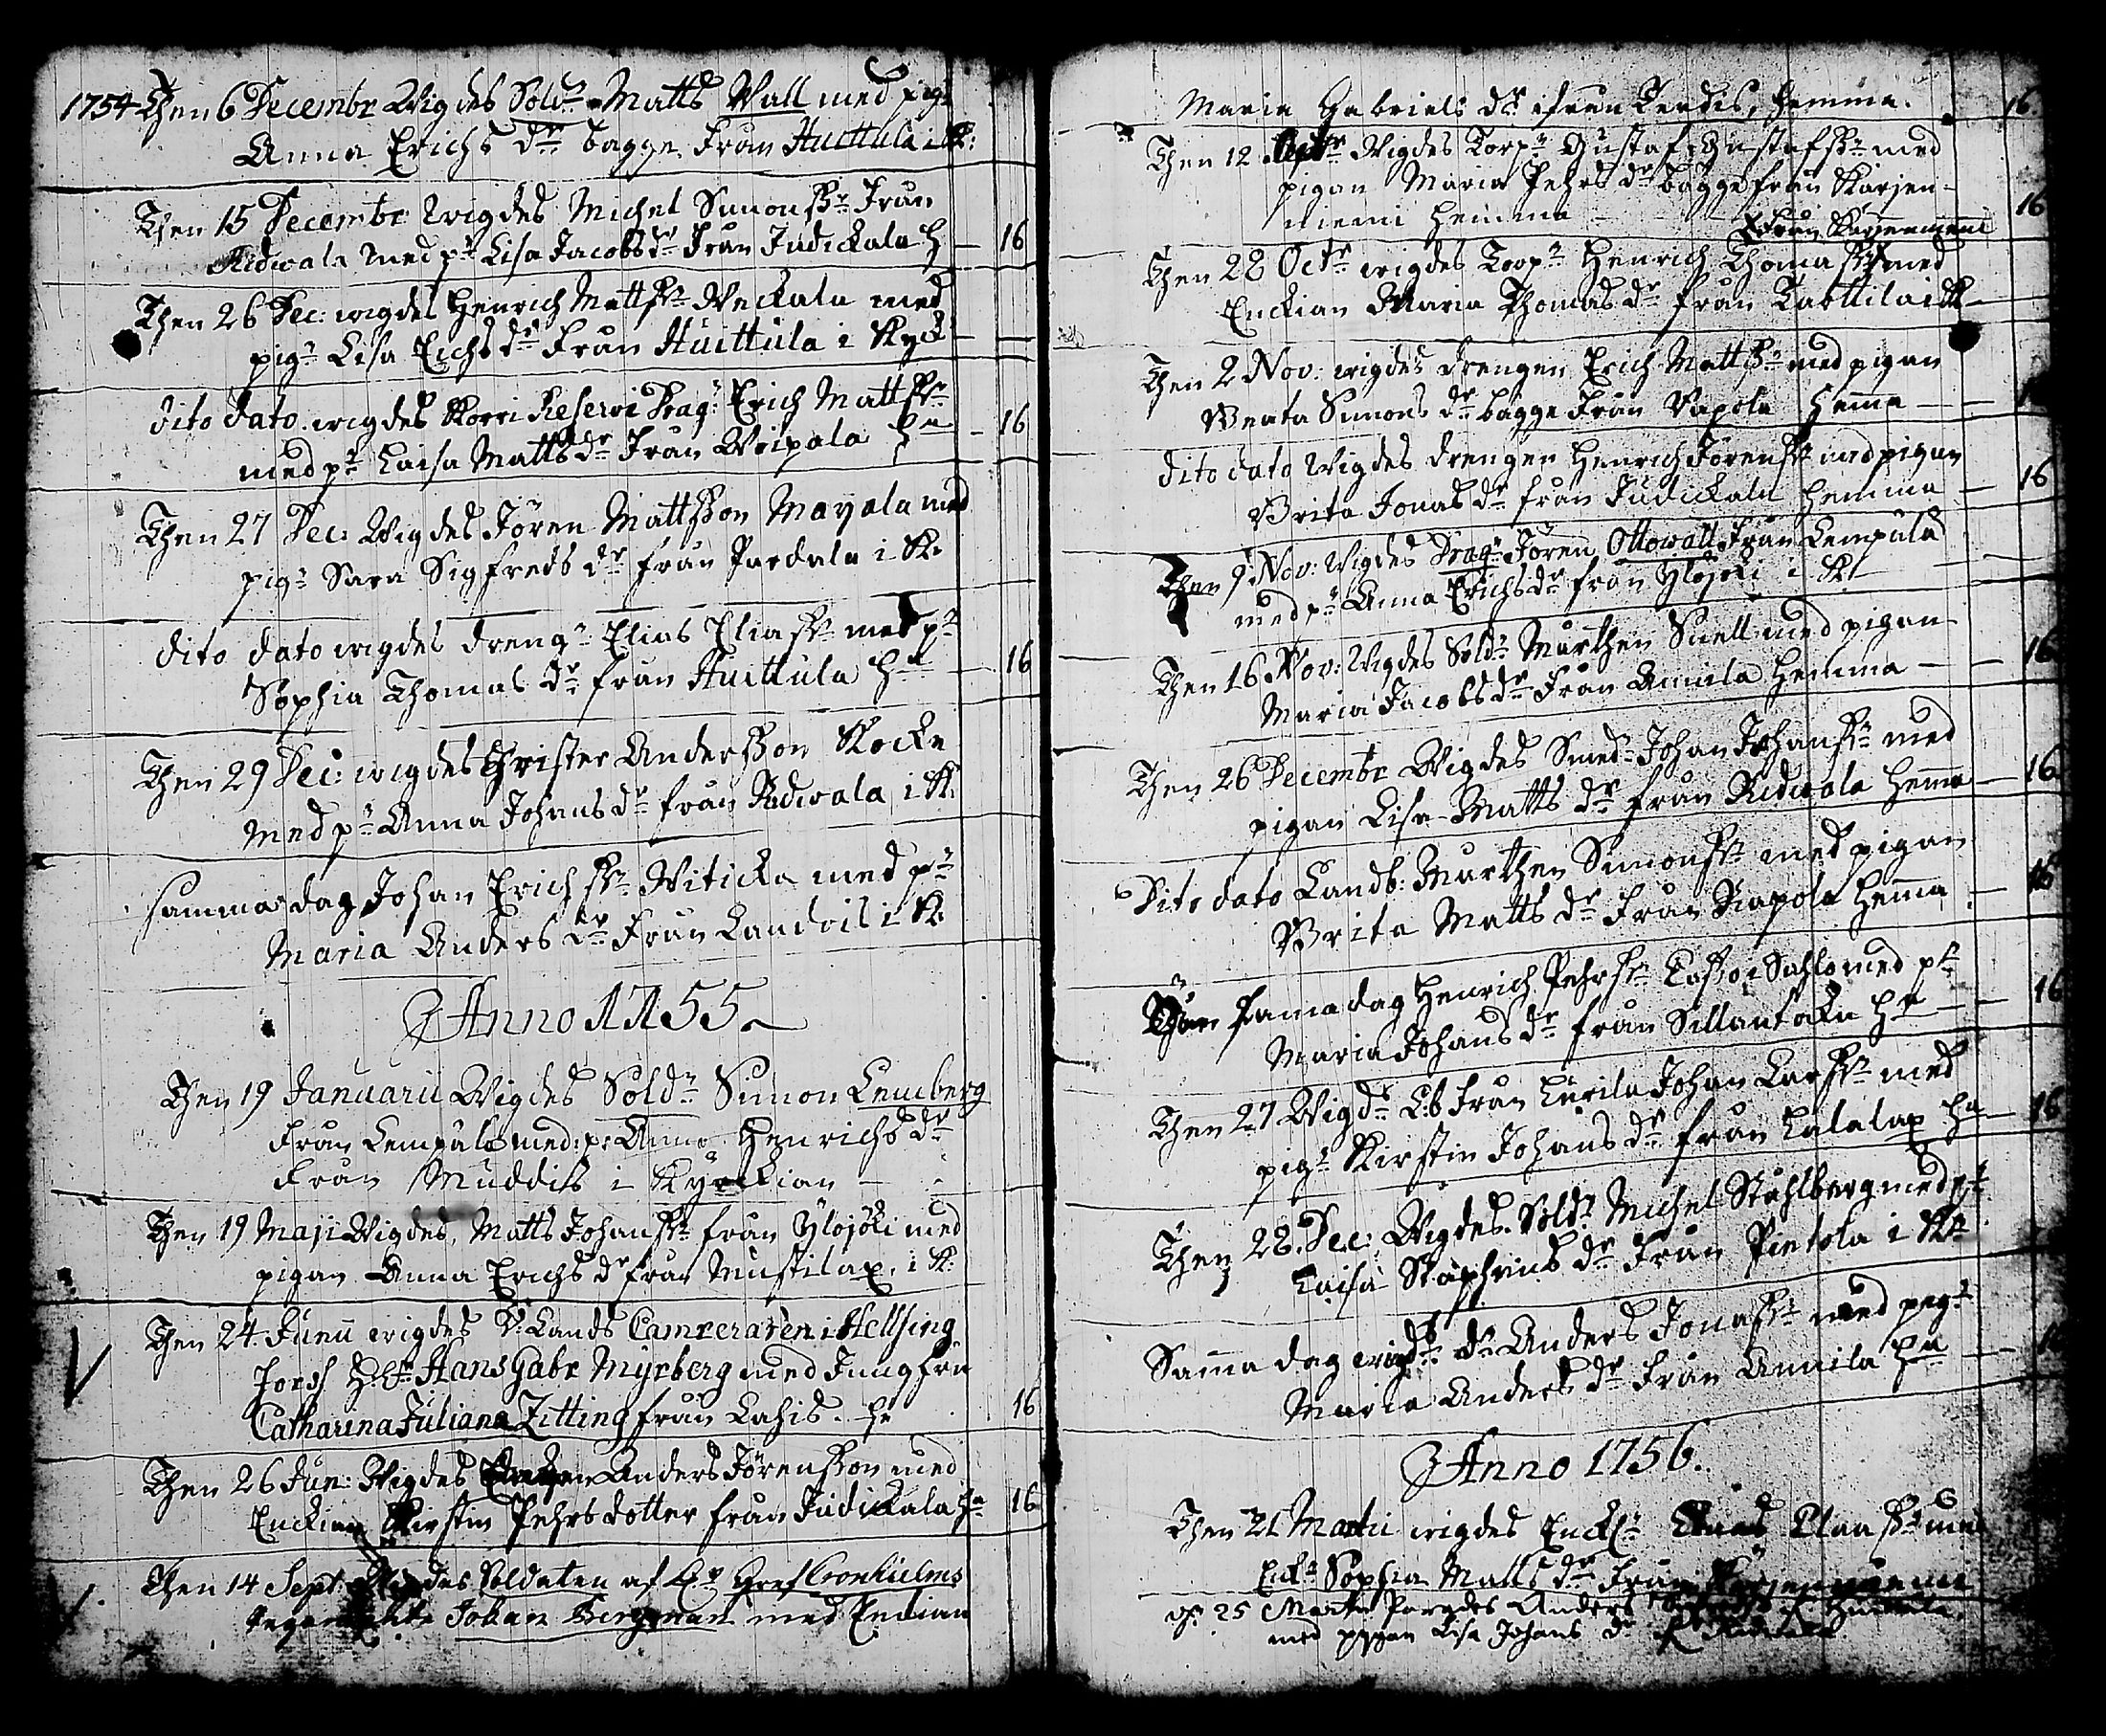 1754 Then 6 Decembr Wigdes Soldn Matts Wall med pign
Anna Erichs dr bägge från Huittula i K:
Then 15 Decembr: wigdes Michel Simonssn från
Ridwala med pn Lisa Jacobs dr från Judickala H — 16
Then 26 Dec: wigdes Henrich Mattssn Weckala med
pign Lisa Erichs dr från Huittula i Kyrck
dito dato. wigdes Korri Reserve Dragn Erich Mattssn
med pn Caisa Matts dr från Woipala Ha — 16
Then 27 Dec: Wigdes Jören Mattsson Mayala med
pign Sara Sigfreds dr från Pardala i K:
dito dato wigdes drengn Elias Eliassn med pn
Sophia Thomas dr från Huittula Ha — 16
Then 29 Dec: wigdes Christer Andersson Kocke
med pn Anna Johans dr från Ridwala i K:
samma dag Johan Erichssn Witicka med pn
Maria Anders dr från Laudois i K:
Anno 1755
Then 19 Januarii Wigdes Soldn Simon Lemberg
från Lempälä med: p: Anna Henrichs dr
från Muddis i Kyrckian
Then 19 Maji Wigdes, Matts Johanssn från Ylojöki med
pigan Anna Erichs dr från Mustilax i K:
Then 24 Junii wigdes V: Lands Camreraren i Helsing
fors H: Hr Hans Gabr Myrberg med Jungfru
Catharina Juliana Zitting från Lahis. He 16
Then 26 Jun: Wigdes Anders Jörensson med
Enckian Kirstin Pehrs dotter från Judickala Ha 16
Then 14 Sept: Wigdes Soldaten af Gref Cronhielms
Johan Bergman med Enckian
Maria Gabriels dr ifrån Terdis, hemma. 16
Then 12 Wigdes Torpn Gustaf Gustafssn med
pigan Maria Pehrs dr bägge från Karjen-
niemi hemma 16
från Karjenniemi
Then 28 Octr wigdes Torpn Henrich Thomassn med
Enckian Maria Thomas dr från Tarttila i K
Then 2 Nov: wigdes drengen Erich Mattssn med pigan
Beata Simons dr bägge från Rapola hemma — 16
dito dato Wigdes drengen Henrich Jörenssn med pigan
Brita Jonas dr från Judickala hemma — 16
Then 9 Nov: Wigdes Dragn Jören Ottowall från Lempälä
med pn Anna Erichs dr från Ylojöki i K:
Then 16 Nov: Wigdes Soldn Mårthen Snell med pigan
Maria Jacobs dr från Annila hemma — 16
Then 26 Decembr Wigdes Smedn Johan Johanssn med
pigan Lisa Matts dr från Ridwala hemma — 16
Dito dato Landb: Mårthen Simonssn med pigan
Brita Matts dr från Rapola hemma — 16
samma dag Henrich Pehrssn Sahlo med pn
Maria Johans dr från Sillantaka Ha — 16
Then 27 Wigds Lb från Kurila Johan Larssn med
pign Kirstin Johans dr från Kalalax Ha — 16
Then 28. Dec: Wigdes. Soldn Michel Ståhlberg med pn
Caisa Staphens dr från Pintola i Ka
Sama dag wigds dn Anders Jonassn med pign
Maria Anders dr från Annila Ha — 16
Anno 1756.
Then 21 Martii wigdes Encln Claas Claassn med
Enkn Sophia Matts dr från Karjenniemi
25 Martii Anders Huittula
med pigan Lisa Johans dr